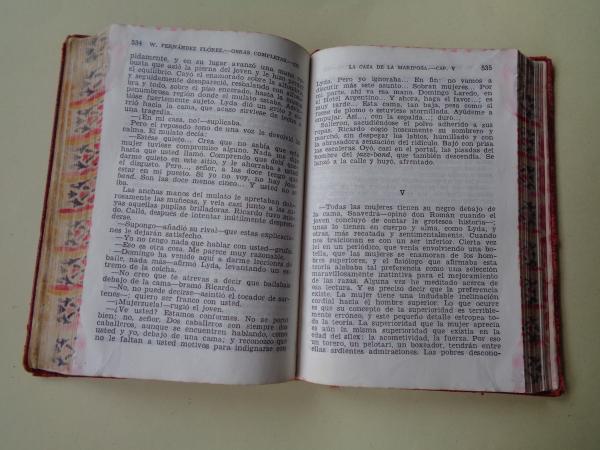 534 W. FERNÁNDEZ FLÓREZ.—OBRAS COMPLETAS.
pidamente, y en su lugar avanzó una mano
busta que asió la pierna del joven y le hizo
el equilibrio. Cayó el enamorado sobre la alfombra
y seguidamente desapareció, resbalando con
bra y todo, sobre el piso encerado, hasta la
penumbrosa región donde el mulato estaba.
nióse fuertemente sujeto. Lyda dio un
rrió hacia la cama, que acaso sirviese de
una tragedia.
—¡En mi casa, no!—suplicaba.
Pero el reposado tono de una voz le devolvió la
calma. El mulato decía:
—Estése quieto. Crea que no sabía que esta
mujer tuviese compromiso alguno. Nada me
hasta que usted llamó. Comprendo que debo
darme quieto en este sitio, y le ahorraba a usted
el disgusto. Pero, señor, a las doce tengo que
estar en mi puesto. Si yo no voy, no hay jazz-
band. Son las doce menos cinco... Y usted no se
iba.
Las anchas manos del mulato le apretaban dolo-
rosamente las muñecas, y veía casi junto a las su-
yas aquellas pupilas brilladoras. Ricardo tuvo mie-
do. Calló, después de intentar inútilmente despren-
derse.
—Supongo—añadió su rival—que estas explicacio-
nes le dejarán satisfecho.
—Yo no tengo nada que hablar con usted—gruñó.
—Eso es otra cosa. Me parece muy razonable.
—Domingo ha venido aquí a darme lecciones de
baile, nada más—afirmó Lyda, levantando un ex-
tremo de la colcha.
—No creo que te atrevas a decir que bailabas
debajo de la cama—bramó Ricardo.
—No, no puede decirse—asintió el tocador de sar-
tenes—; quiero ser franco con usted.
—¡Muérmela!—rugió el joven.
—¿Ve usted? Estamos conformes. No se porta
bien; no, señor. Dos caballos son siempre dos
caballeros, aunque se encuentren hablando, como
usted y yo, debajo de una cama; y reconozco que
no le faltan a usted motivos para indignarse con
LA CAZA DE LA MARIPOSA.—CAP. V 535
Lyda. Pero yo ignoraba... En fin: no vamos a
discutir más este asunto... Sobran mujeres... Por
mi parte, ahí va mi mano. Domingo Laredo, en
el Hotel Argentino... Y ahora, haga el favor...; es
muy tarde... Esta cama, tan baja, pesa como si
fuese de plomo y estuviese atornillada. Ayúdeme a
empujar. Así..., con la espalda...; duro...
Salieron, sacudiéndose el polvo adherido a sus
ropas. Ricardo cogió hoscamente su sombrero y
marchó, sin despegar los labios, humillado y con
la abrasadora sensación del ridículo. Bajó con prisa
las escaleras. Oyó, casi en el portal, las pisadas del
hombre del jazz-band, que también descendía. Se
lanzó a la calle y huyó, afrentado.
V
—Todas las mujeres tienen su negro debajo de
la cama, Saavedra—opinó don Román cuando el
joven concluyó de contar la grotesca historia—;
unas lo tienen en cuerpo y alma, como Lyda, y
otras, más recatada y sentimentalmente. Cuando
nos traicionan es con un ser inferior. Cierta vez
leí en un periódico, que venía envolviendo una bo-
tella, que las mujeres se enamoran de los hom-
bres superiores, y el fisiólogo que afirmaba esta
teoría alababa tal preferencia como una selección
maravillosamente instintiva para el mejoramiento
de las razas. Alguna vez he meditado acerca de
esa lectura. Y es preciso decir que la preferencia
existe. La mujer tiene una indudable inclinación
cordial hacia el hombre superior. Lo que ocurre
es que su concepto de la superioridad es terrible-
mente erróneo, y este pequeño detalle estropea to-
da la teoría. La superioridad que la mujer aprecia
es aún la misma superioridad que existía en la
edad del sílex: la acometividad, la fuerza. Por eso
un torero, un pelotari, un boxeador, tendrán entre
ellas ardientes admiraciones. Las pobres descono-